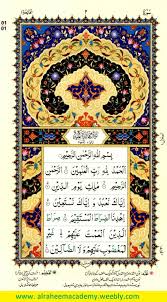 01
01
٢
بِسْمِ اللهِ الرَّحْمٰنِ الرَّحِيْمِ
اَلْحَمْدُ لِلّٰهِ رَبِّ الْعٰلَمِيْنَ ۝ الرَّحْمٰنِ
الرَّحِيْمِ ۝ مٰلِكِ يَوْمِ الدِّيْنِ ۝
اِيَّاكَ نَعْبُدُ وَاِيَّاكَ نَسْتَعِيْنُ ۝
اِهْدِنَا الصِّرَاطَ الْمُسْتَقِيْمَ ۝ صِرَاطَ
الَّذِيْنَ اَنْعَمْتَ عَلَيْهِمْ غَيْرِ
الْمَغْضُوْبِ عَلَيْهِمْ وَلَا الضَّآلِّيْنَ ۝
www.alraheemacademy.weebly.com